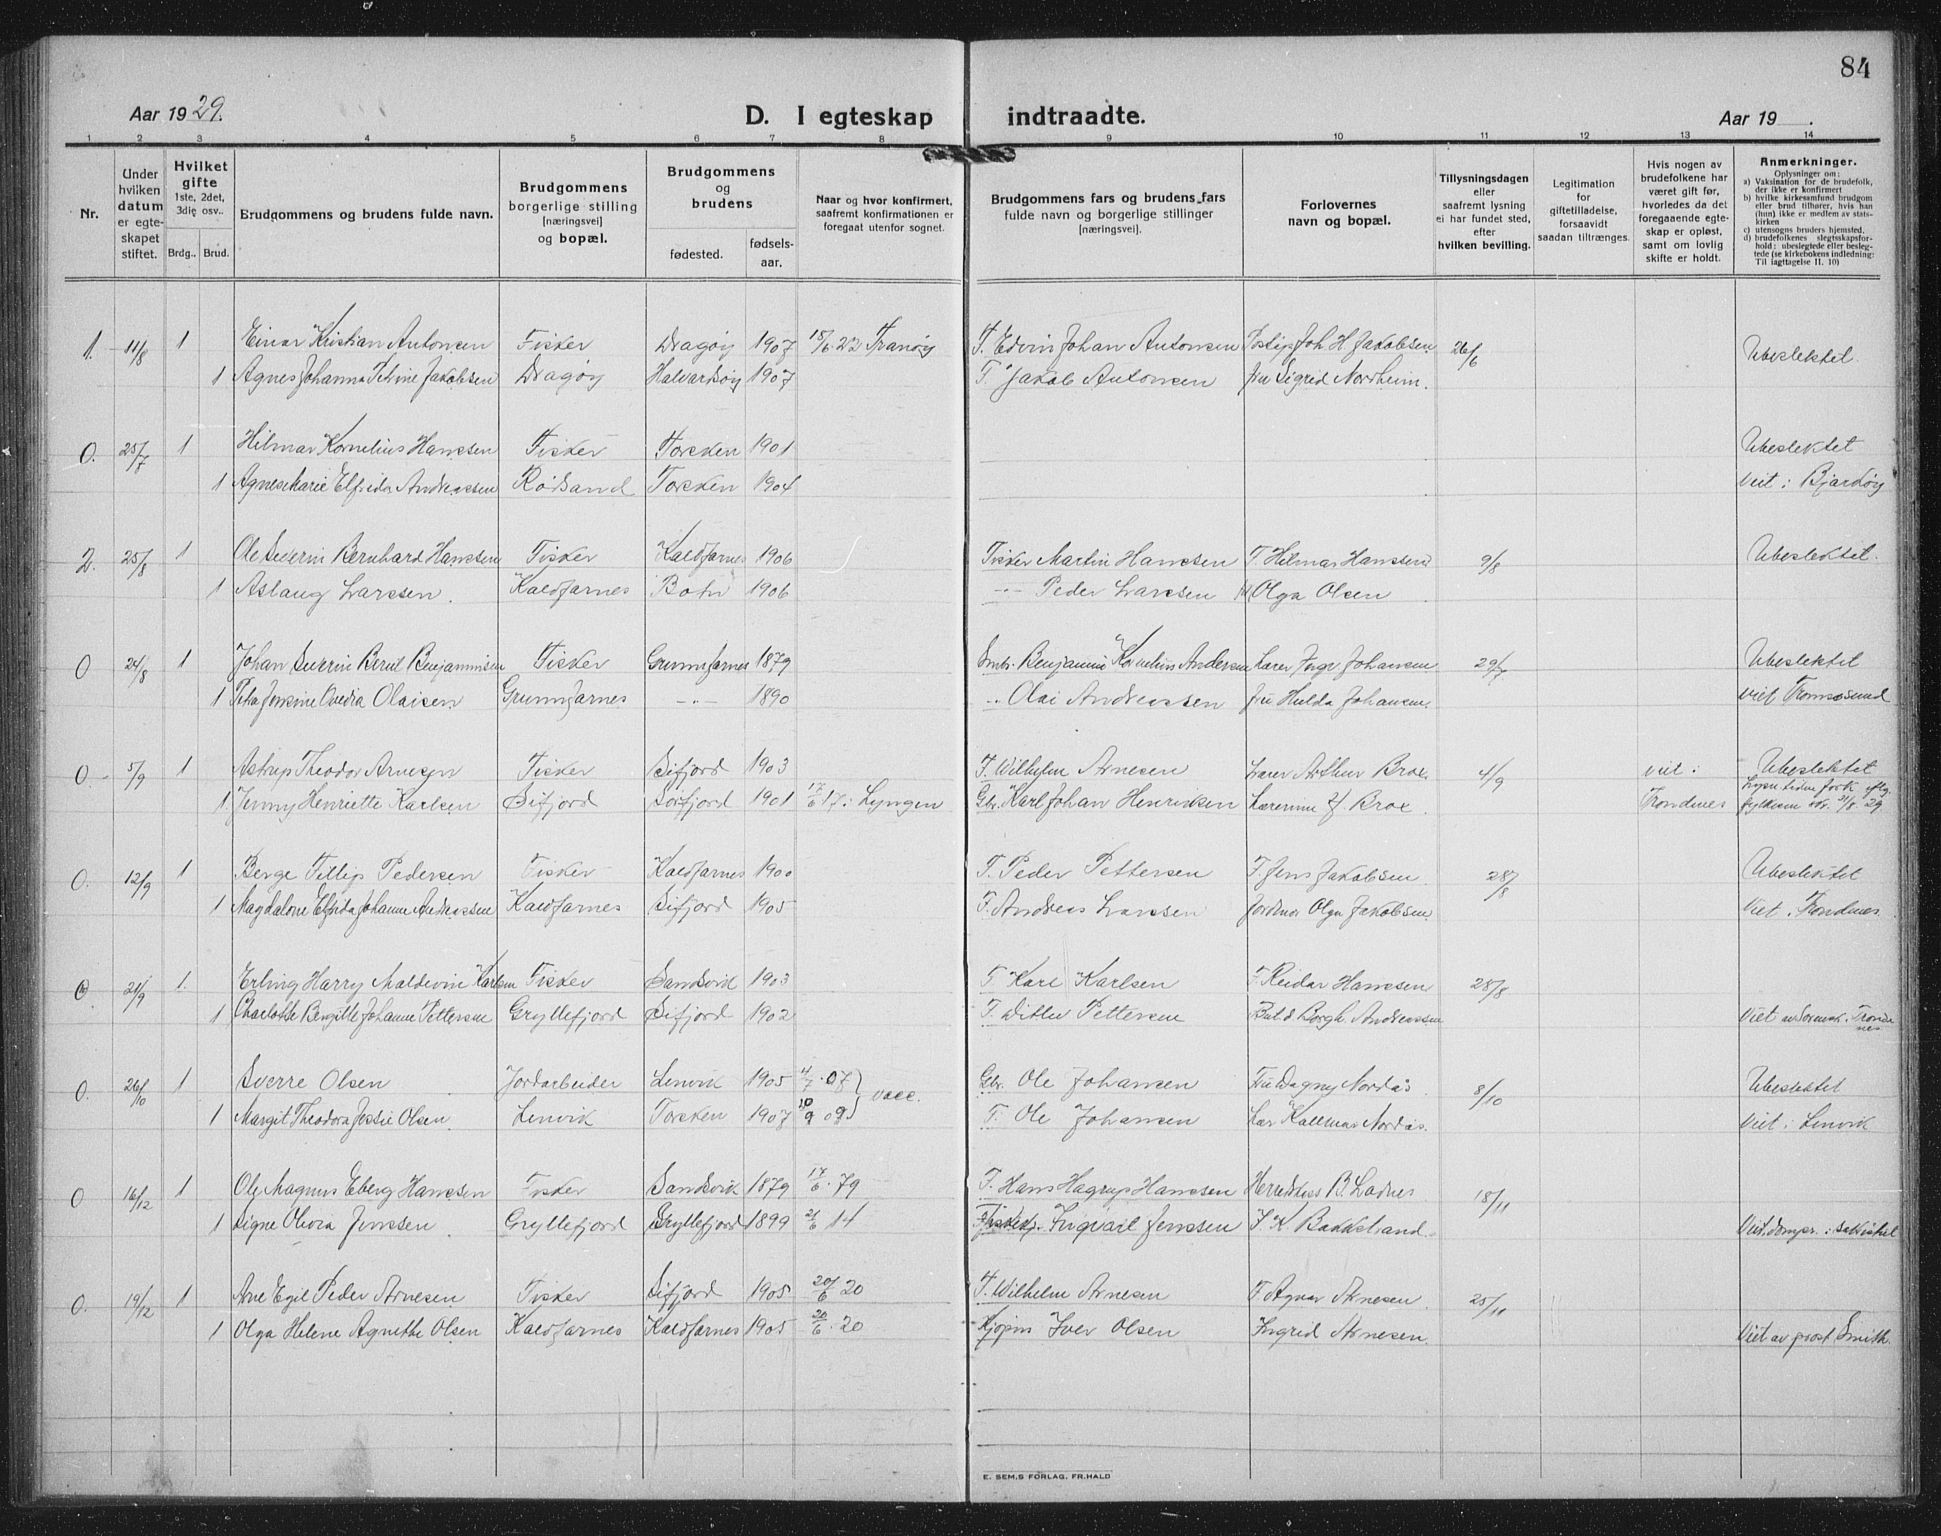 84
Aar 1929.
D. I egteskap indtraadte.
Aar 19 .
1 2 3 4 5 6 7 8 9 10 11 12 13 14
Nr.
Under hvilken datum er egteskapet stiftet.
Hvilket gifte 1ste, 2det, 3die osv.
Brdg.. Brud.
Brudgommens og brudens fulde navn.
Brudgommens borgerlige stilling [næringsvei] og bopæl.
Brudgommens og brudens
fødested.
fødselsaar.
Naar og hvor konfirmert, saafremt konfirmationen er foregaat utenfor sognet.
Brudgommens fars og brudens fars fulde navn og borgerlige stillinger [næringsvei].
Forlovernes navn og bopæl.
Tillysningsdagen eller saafremt lysning ei har fundet sted, efter hvilken bevilling.
Legitimation for giftetilladelse, forsaavidt saadan tiltrænges.
Hvis nogen av brudefolkene har været gift før, hvorledes da det foregaaende egteskap er opløst, samt om lovlig skifte er holdt.
Anmerkninger.
Oplysninger om:
a) Vaksination for de brudefolk, der ikke er konfirmert
b) hvilke kirkesamfund brudgom eller brud tilhører, hvis han (hun) ikke er medlem av statskirken
c) utensogns bruders hjemsted.
d) brudefolkenes slegtsskapsforhold: ubeslegtede eller beslegtede (se kirkebokens indledning: Til iagttagelse II. 10)
1. 14/8 1 Einar Kristian Antonsen Fisker Dragøy 1907 18/6 22 Tranøy F. Edvin Johan Antonsen Joh H Jakobsen 26/6 Ubeslektet.
1 Agnes Johanna Petrine Jakobsen Dragøy Halvardsøy 1907 F. Jakob Antonsen fru Sigrid Nordheim.
0. 25/7 1 Hilmar Kornelius Hanssen Fisker Torsken 1901 Ubeslektet
1 Agnes Marie Elfrida Andreassen Rødsand Torsken 1904 Viet i Bjarkøy
2. 25/8 1 Ole Severin Bernhard Hanssen Fisker Kaldfarnes 1906 Fisker Martin Hanssen F. Hilmar Hanssen 9/8 Ubeslektet.
1 Aslaug Larssen. Kaldfarnes Botn 1906 -"- Peder Larssen Olga Olsen
0 24/8 1 Johan Severin Bernt Benjaminsen Fisker Grunnfarnes 1879 Smbr. Benjamin Kornelius Andersen Lærer Johansen 29/7 Ubeslektet
1 Petra Jensine Ovedia Olaisen Grunnfarnes -"- 1890 -"- Olai Andreassen fru Hulda Johansen. viet Tromsøsund
0 5/9 1 Astrup Theodor Arnesen Fisker Sifjord 1903 F. Wilhelm Arnesen Lærer Arthur Brox 4/9 viet i Ubeslektet
1 Jenny Henriette Karlsen Sifjord Sørfjord 1901 17/6 17 i Lyngen Gbr. Karl Johan Henriksen Lærerinne J. Brox Trondenes Lysn. tiden fork. eflg. fylkesm skr. 31/8 29.
0. 12/9 1 Berge Fillip Pedersen Fisker Kaldfarnes 1900 F. Peder Pettersen F. Jens Jakobsen 28/8 Ubeslektet
1 Magdalene Elfrida Johanne Andreassen Kaldfarnes Sifjord 1905 F. Andreas Larssen Jordmor Olga Jakobsen. Viet i Trondenes.
0. 21/9 1. Erling Harry Maldevin Karlsen Fisker Sandsvik 1903 F. Karl Karlsen F. Reidar Hanssen 28/8
1 Charlotte Bergitte Johanne Pettersen Gryllefjord Sifjord 1902 F. Ditlev Pettersen But.d. Borgh. Andreassen Viet av Sorensk. Trondenes
0. 26/10 1 Sverre Olsen Jordarbeider Lenvik 1905 4/7 07 vacc. Gbr. Ole Johansen Fru Dagny Nordås 8/10 Ubeslektet
1 Margit Theodora Jessie Olsen. Lenvik Torsken 1907 10/9 09 F. Ole Johansen Lær Kallmar Nordås. Viet i Lenvik
0 16/12 1 Ole Magnus Eberg Hanssen Fisker Sandsvik 1879 17/6 79 F. Hans Hagrup Hanssen Herredskass B. Ladnes 18/11
1 Signe Olvora Jenssen. Gryllefjord Gryllefjord 1899 21/6 14 Ingvart Jenssen J. K. Bakkestrand.
0. 19/12 1 Arne Egil Peder Arnesen Fisker Sifjord 1905 20/6 20 F. Wilhelm Arnesen F. Agnar Arnesen. 25/11
1 Olga Helene Agnethe Olsen Kaldfarnes Kaldfarnes 1905 20/6 20 Kjøpm Iver Olsen Ingrid Arnesen. Viet av prost Smith.
E. SEM,S FORLAG, FR.HALD